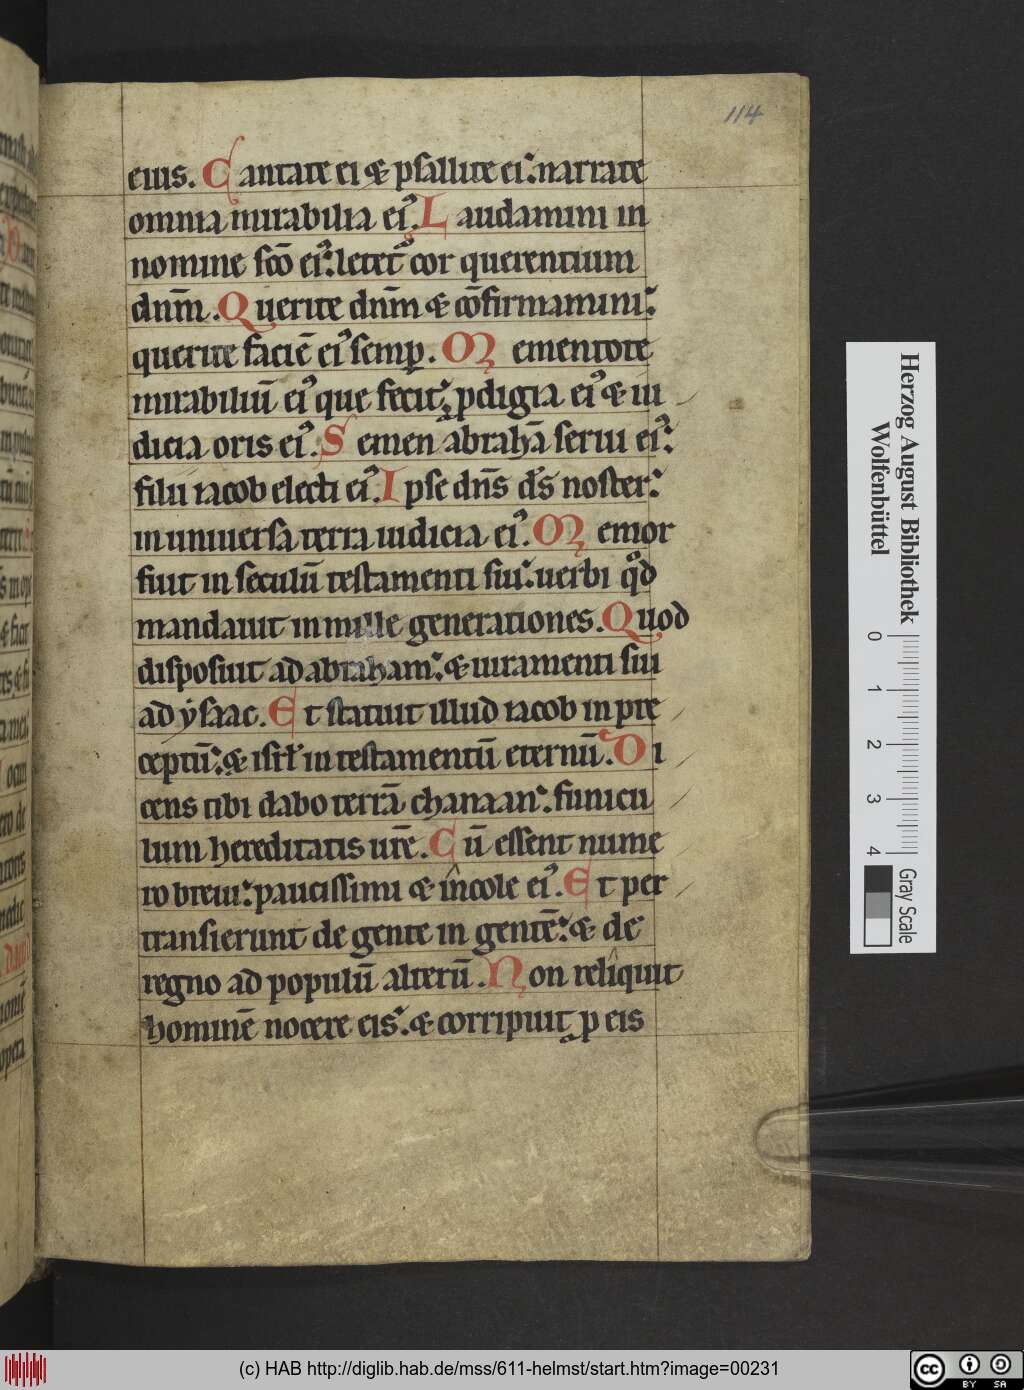 114
eius. Cantate ei & psallite ei: narrate
omnia mirabilia eiꝰ. Laudamini in
nomine sc̄o eiꝰ: letet᷑ cor querentium
dn̄m. Querite dn̄m & cōfirmamini:
querite faciē eiꝰ semꝑ. Mementote
mirabiliū eiꝰ que fecit: ꝓdigia eiꝰ & iu
dicia oris eiꝰ. Semen abrahā serui eiꝰ:
filii iacob electi eiꝰ. Ipse dn̄s ds̄ noster:
in uniuersa terra iudicia eiꝰ. Memor
fuit in seculū testamenti sui: uerbi qͦd
mandauit in mille generationes. Quod
disposuit ad abraham: & iuramenti sui
ad ẏsaac. Et statuit illud iacob in pre
ceptū: & isrl̄ in testamentū eternū. Di
cens tibi dabo terrā chanaan: funicu
lum hereditatis ur̄e. Cū essent nume
ro breui: paucissimi & incole eiꝰ. Et per
transierunt de gente in gentē: & de
regno ad populū alterū. Non reliquit
hominē nocere eis: & corripuit ꝓ eis
Herzog August Bibliothek
Wolfenbüttel
0 1 2 3 4
Gray Scale
(c) HAB http://diglib.hab.de/mss/611-helmst/start.htm?image=00231
cc BY SA